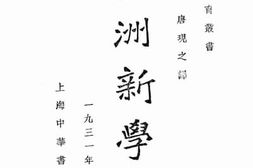 育叢書
唐現之譯
洲新學
一九三一年
上海中華書